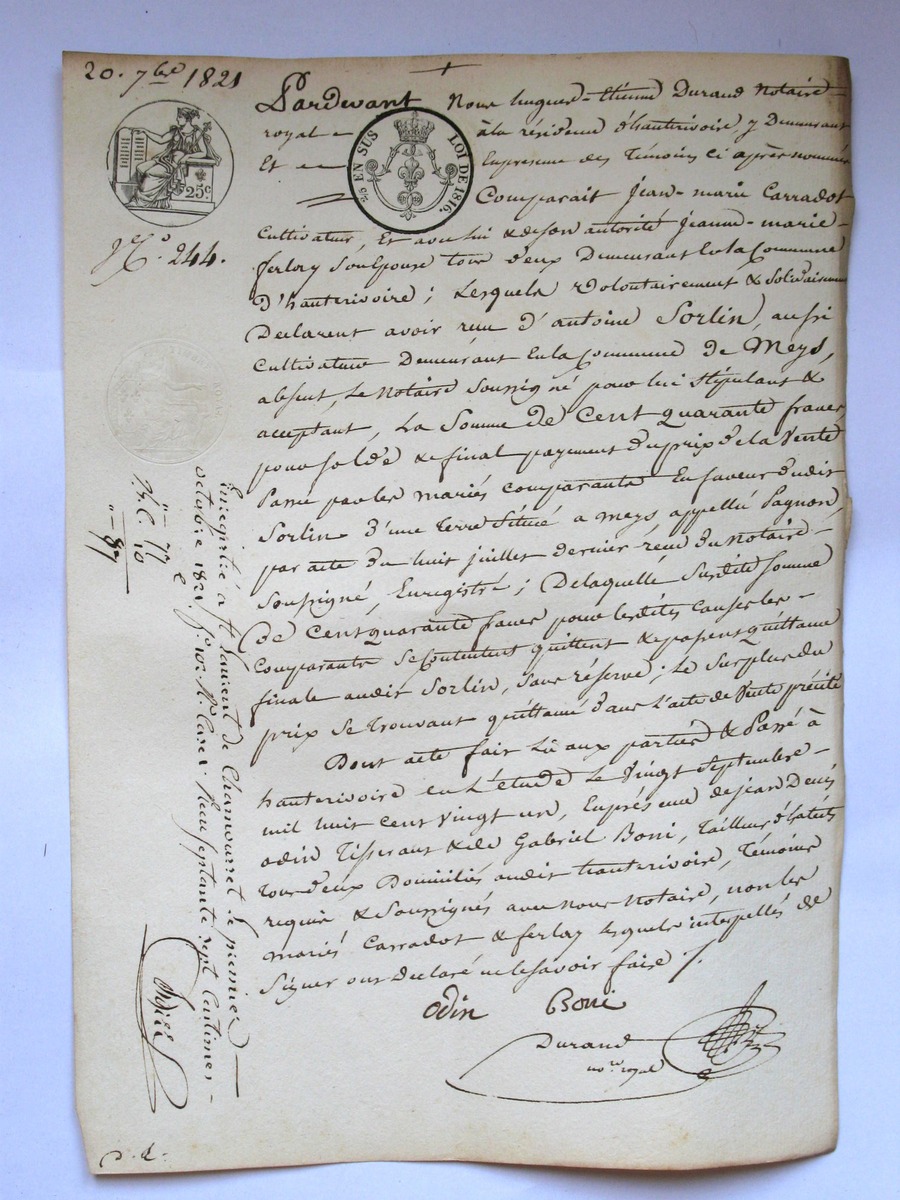 20. 7bre 1821
Pardevant Nous hugues-Etienne Durand Notaire
royal à la résidence d'hauterivoire, y Demeurant
Et En presence des Témoins ci après nommés
Comparait Jean-marie Carradot
Cultivateur, Et avec lui & de son autorité Jeanne-marie
ferlay Son Epouse tous deux Demeurant En la Commune
D'hauterivoire; Lesquels volontairement & Solidairement
Declarent avoir reçu d'antoine Sorlin, aussi
Cultivateur Demeurant En la Commune de Meys,
absent, Le Notaire Soussigné pour lui Stipulant &
acceptant, La Somme de Cent quarante francs,
pour Solde & final payement du prix de la Vente
Passé par les mariés comparants En faveur dudit
Sorlin d'une terre Située a meys appellé Pagnon,
par acte du huit juillet dernier reçu du Notaire
Soussigné, Enregistré; De laquelle Susdite Somme
de Cent quarante francs pour les dites causes les
Comparants Se Contentent quittent & passent quittance
finale audit Sorlin, Sans réserve; Le Surplus du
prix Se trouvant quittancé dans L'acte de Vente précité
Dont acte fait Lu aux parties & Passé à
hauterivoire en L'étude Le Vingt Septembre
mil huit cent vingt un, En présence de jean Denis
odin Tisserant & de Gabriel Boni, Tailleur d'habits
tous deux Domiciliés audit hauterivoire, Témoins
requis & Soussignés avec Nous Notaire, non les
mariés Carradot & ferlay Lesquels interpellés de
Signer ont Declaré ne le Savoir faire
odin Boni
Durand
nore royal
25c.
EN SUS LOI DE 1816.
No. 244.
77
10
87
Enregistré à St Laurent de Chamousset le premier
octobre 1821 fo Reçu Septante Sept Centimes